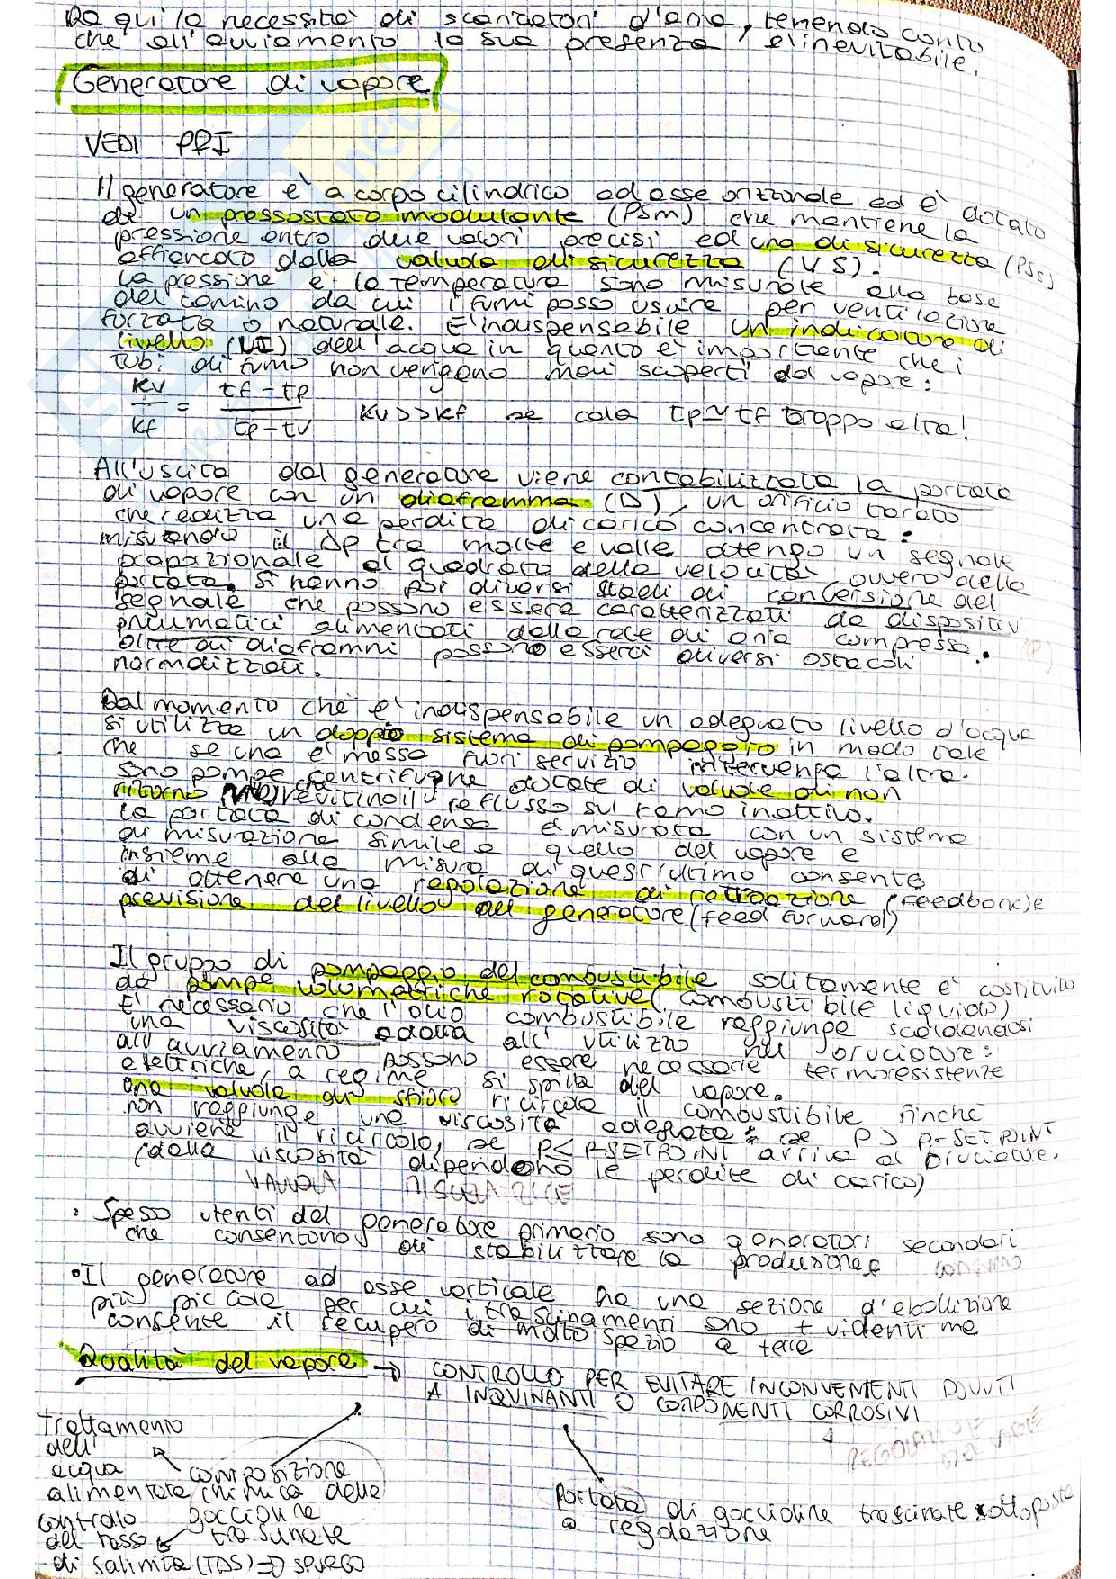 Da qui la necessità di scaricatori d'aria, tenendo conto
che all'avviamento la sua presenza, è inevitabile.
Generatore di vapore
VEDI PPI
Il generatore è a corpo cilindrico ad asse orizzonale ed è dotato
di un pressostato modulante (PSm) che mantiene la
pressione entro due valori precisi ed uno di sicurezza (PSs)
affiancato dalla valvola di sicurezza (VS).
La pressione e la temperatura sono misurate alla base
del camino da cui i fumi posso uscire per ventilazione
forzata o naturale. E' indispensabile un indicatore di
livello (LI) dell'acqua in quanto è importante che i
tubi di fumo non vengano mai scoperti dal vapore:
Kv/Kf = tf-tp/tp-tv Kv>>Kf se cala tp≃tf troppo alta!
All'uscita dal generatore viene contabilizzata la portata
di vapore con un diaframma (D), un orificio tarato
che realizza una perdita di carico concentrata:
misurando il Δp tra monte e valle ottengo un segnale
proporzionale al quadrato della velocità, ovvero della
portata. Si hanno poi diversi stadi di conversione del
segnale che possono essere caratterizzati da dispositivi
pneumatici alimentati dalla rete di aria compressa.
Oltre ai diaframmi possono esserci diversi ostacoli
normalizzati.
Dal momento che è indispensabile un adeguato livello d'acqua
si utilizza un doppio sistema di pompaggio in modo tale
che se una è messa fuori servizio intervenga l'altra.
Sono pompe centrifughe dotate di valvole di non
ritorno evitino il reflusso sul ramo inattivo.
La portata di condensa è misurata con un sistema
di misurazione simile a quello del vapore e
insieme alla misura di quest'ultimo consente
di ottenere una regolazione di retroazione (Feedback) e
previsione del livello del generatore (feed forward)
Il gruppo di pompaggio del combustibile solitamente è costituito
da pompe volumetriche rotative (combustibile liquido)
E' necessario che l'olio combustibile raggiunga scaldandosi
una viscosità adatta all'utilizzo nel bruciatore:
all'avviamento possono essere necessarie termoresistenze
elettriche, a regime si spilla del vapore.
Una valvola di sfioro ricircola il combustibile finché
non raggiunge una viscosità adeguata: se p > p-SETPOINT
avviene il ricircolo, se p < p-SETPOINT arriva al bruciatore.
(dalla viscosità dipendono le perdite di carico)
VALVOLA
• Spesso utenti del generatore primario sono generatori secondari
che consentono di stabilizzare la produzione e consumo
• Il generatore ad asse verticale ha una sezione d'ebollizione
più piccola per cui i trascinamenti sono + videnti ma
consente il recupero di molto spazio a terra
Qualità del vapore → CONTROLLO PER EVITARE INCONVENIENTI DOVUTI
A INQUINANTI O COMPONENTI CORROSIVI
Trattamento
dell'
acqua
alimentata
controllo
del tasso
di salinità (TDS) ⇒ SPURGO
composizione
chimica delle
goccioline
trasinate
Portata di goccioline trascinate sottoposta
a regolazione